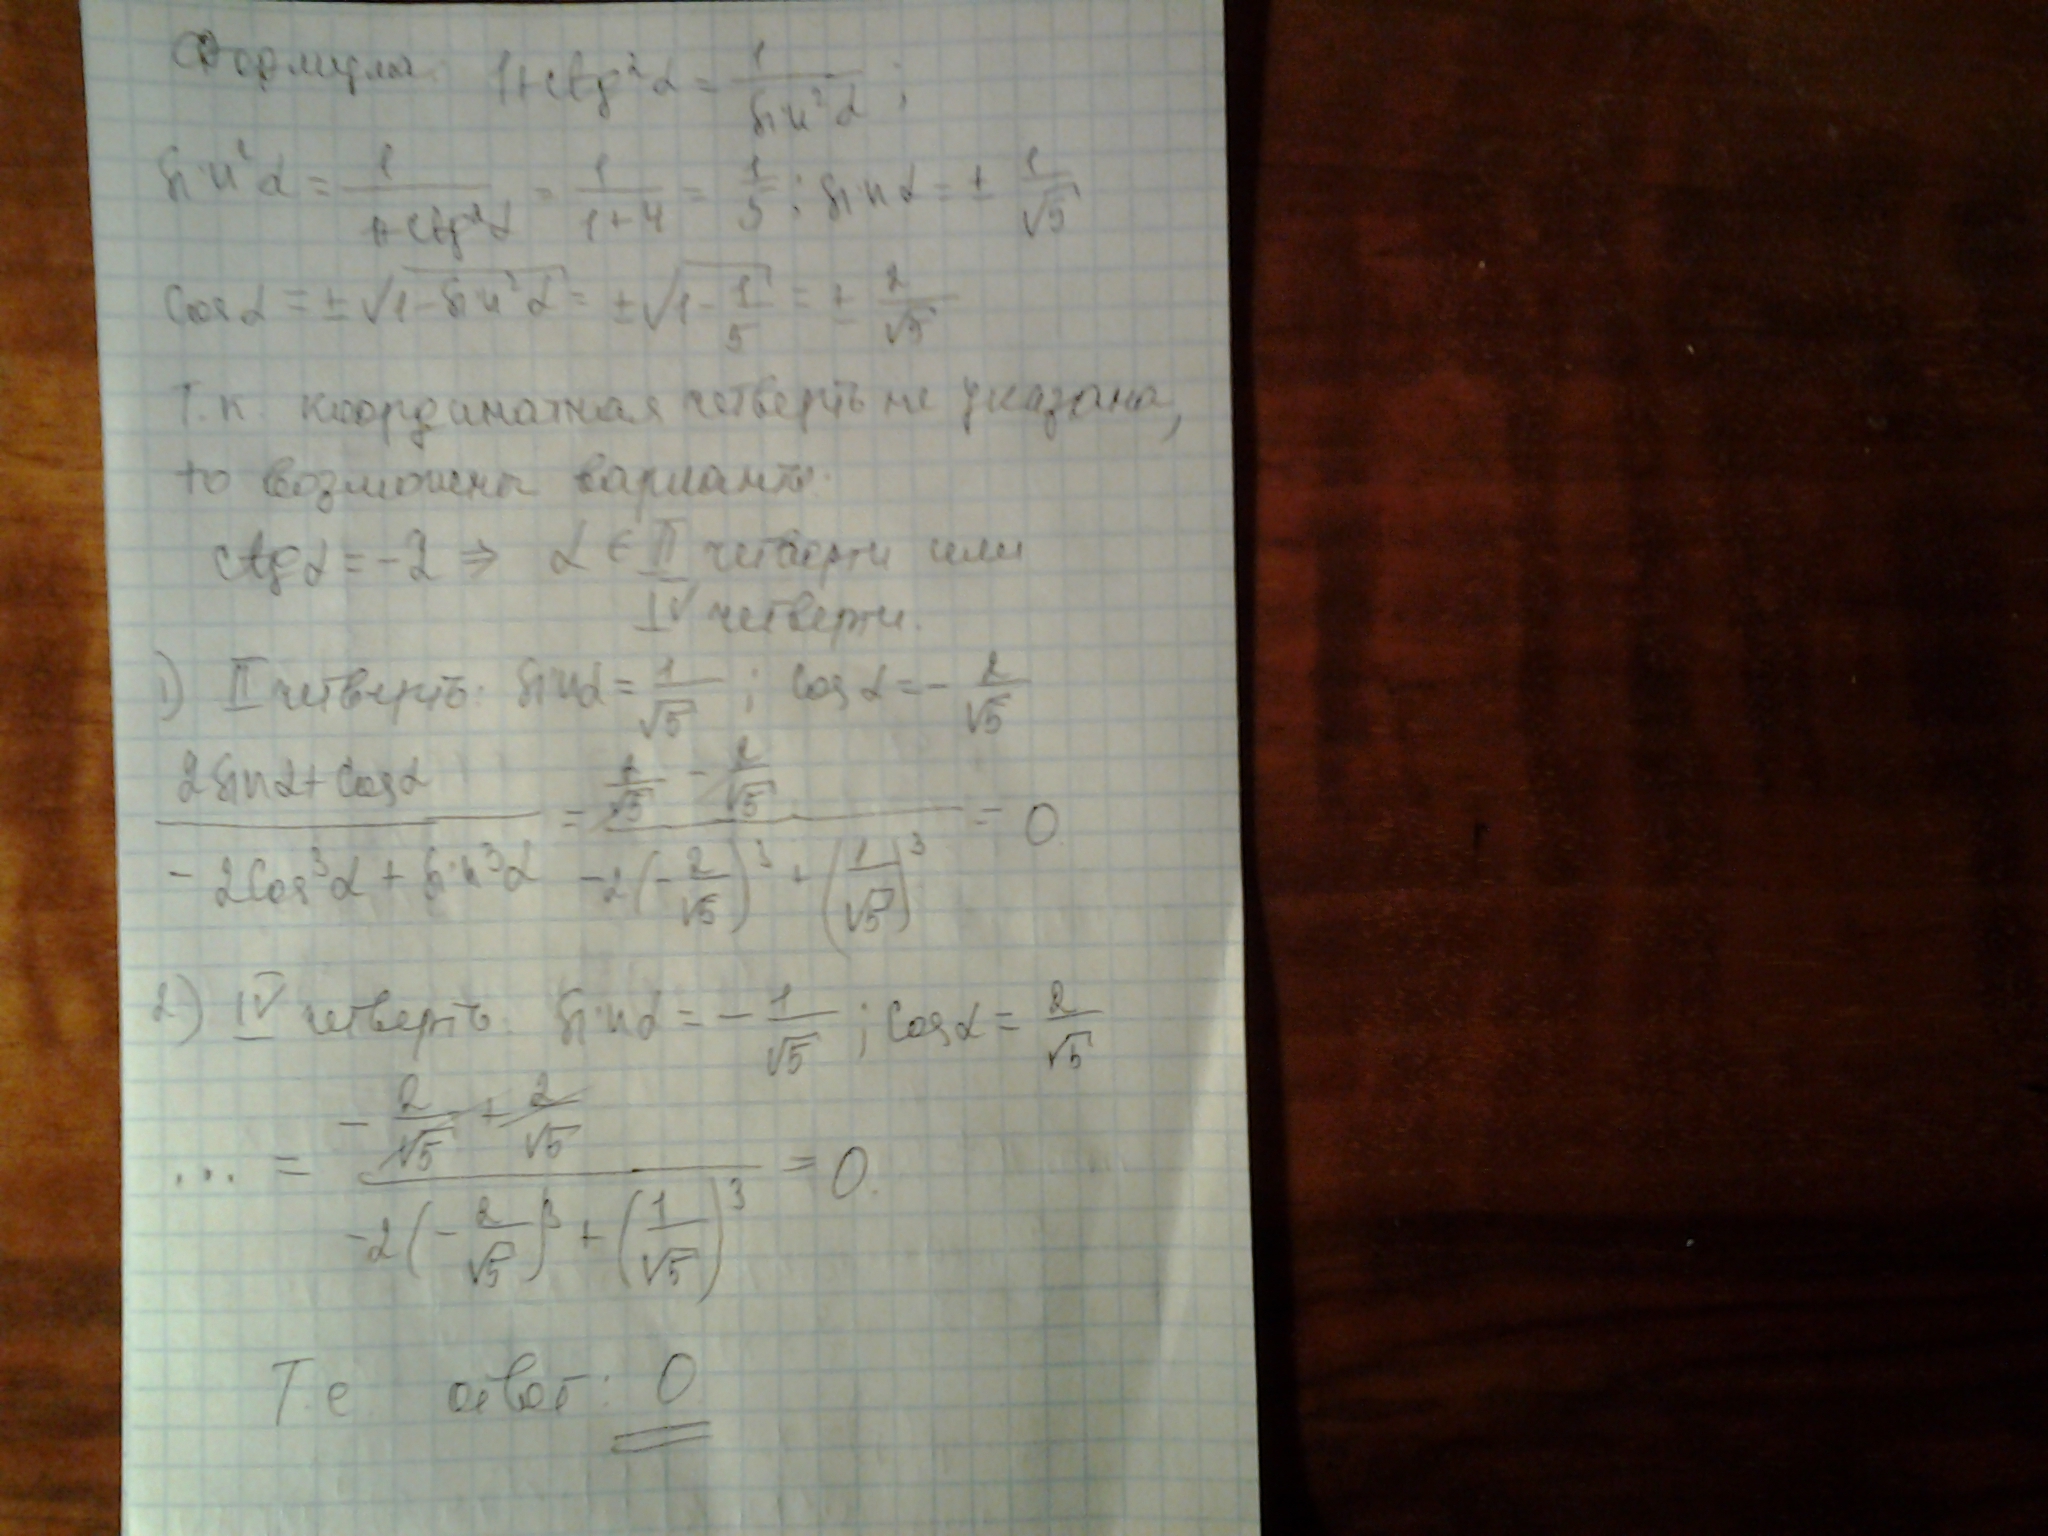 Формула: 1+ctg²α = 1/sin²α ;
sin²α = 1/(1+ctg²α) = 1/(1+4) = 1/5 ; sinα = ± 1/√5
cosα = ±√(1-sin²α) = ±√(1-1/5) = ± 2/√5
Т.к. координатная четверть не указана,
то возможны варианты:
ctgα = -2 ⇒ α ∈ II четверти или
IV четверти.
1) II четверть: sinα = 1/√5 ; cosα = - 2/√5
(2sinα + cosα)/(-2cos³α + sin³α) = (2/√5 - 2/√5)/(-2(-2/√5)³ + (1/√5)³) = 0.
2) IV четверть: sinα = - 1/√5 ; cosα = 2/√5
... = (- 2/√5 + 2/√5)/(-2(-2/√5)³ + (1/√5)³) = 0.
Т.е. ответ: 0